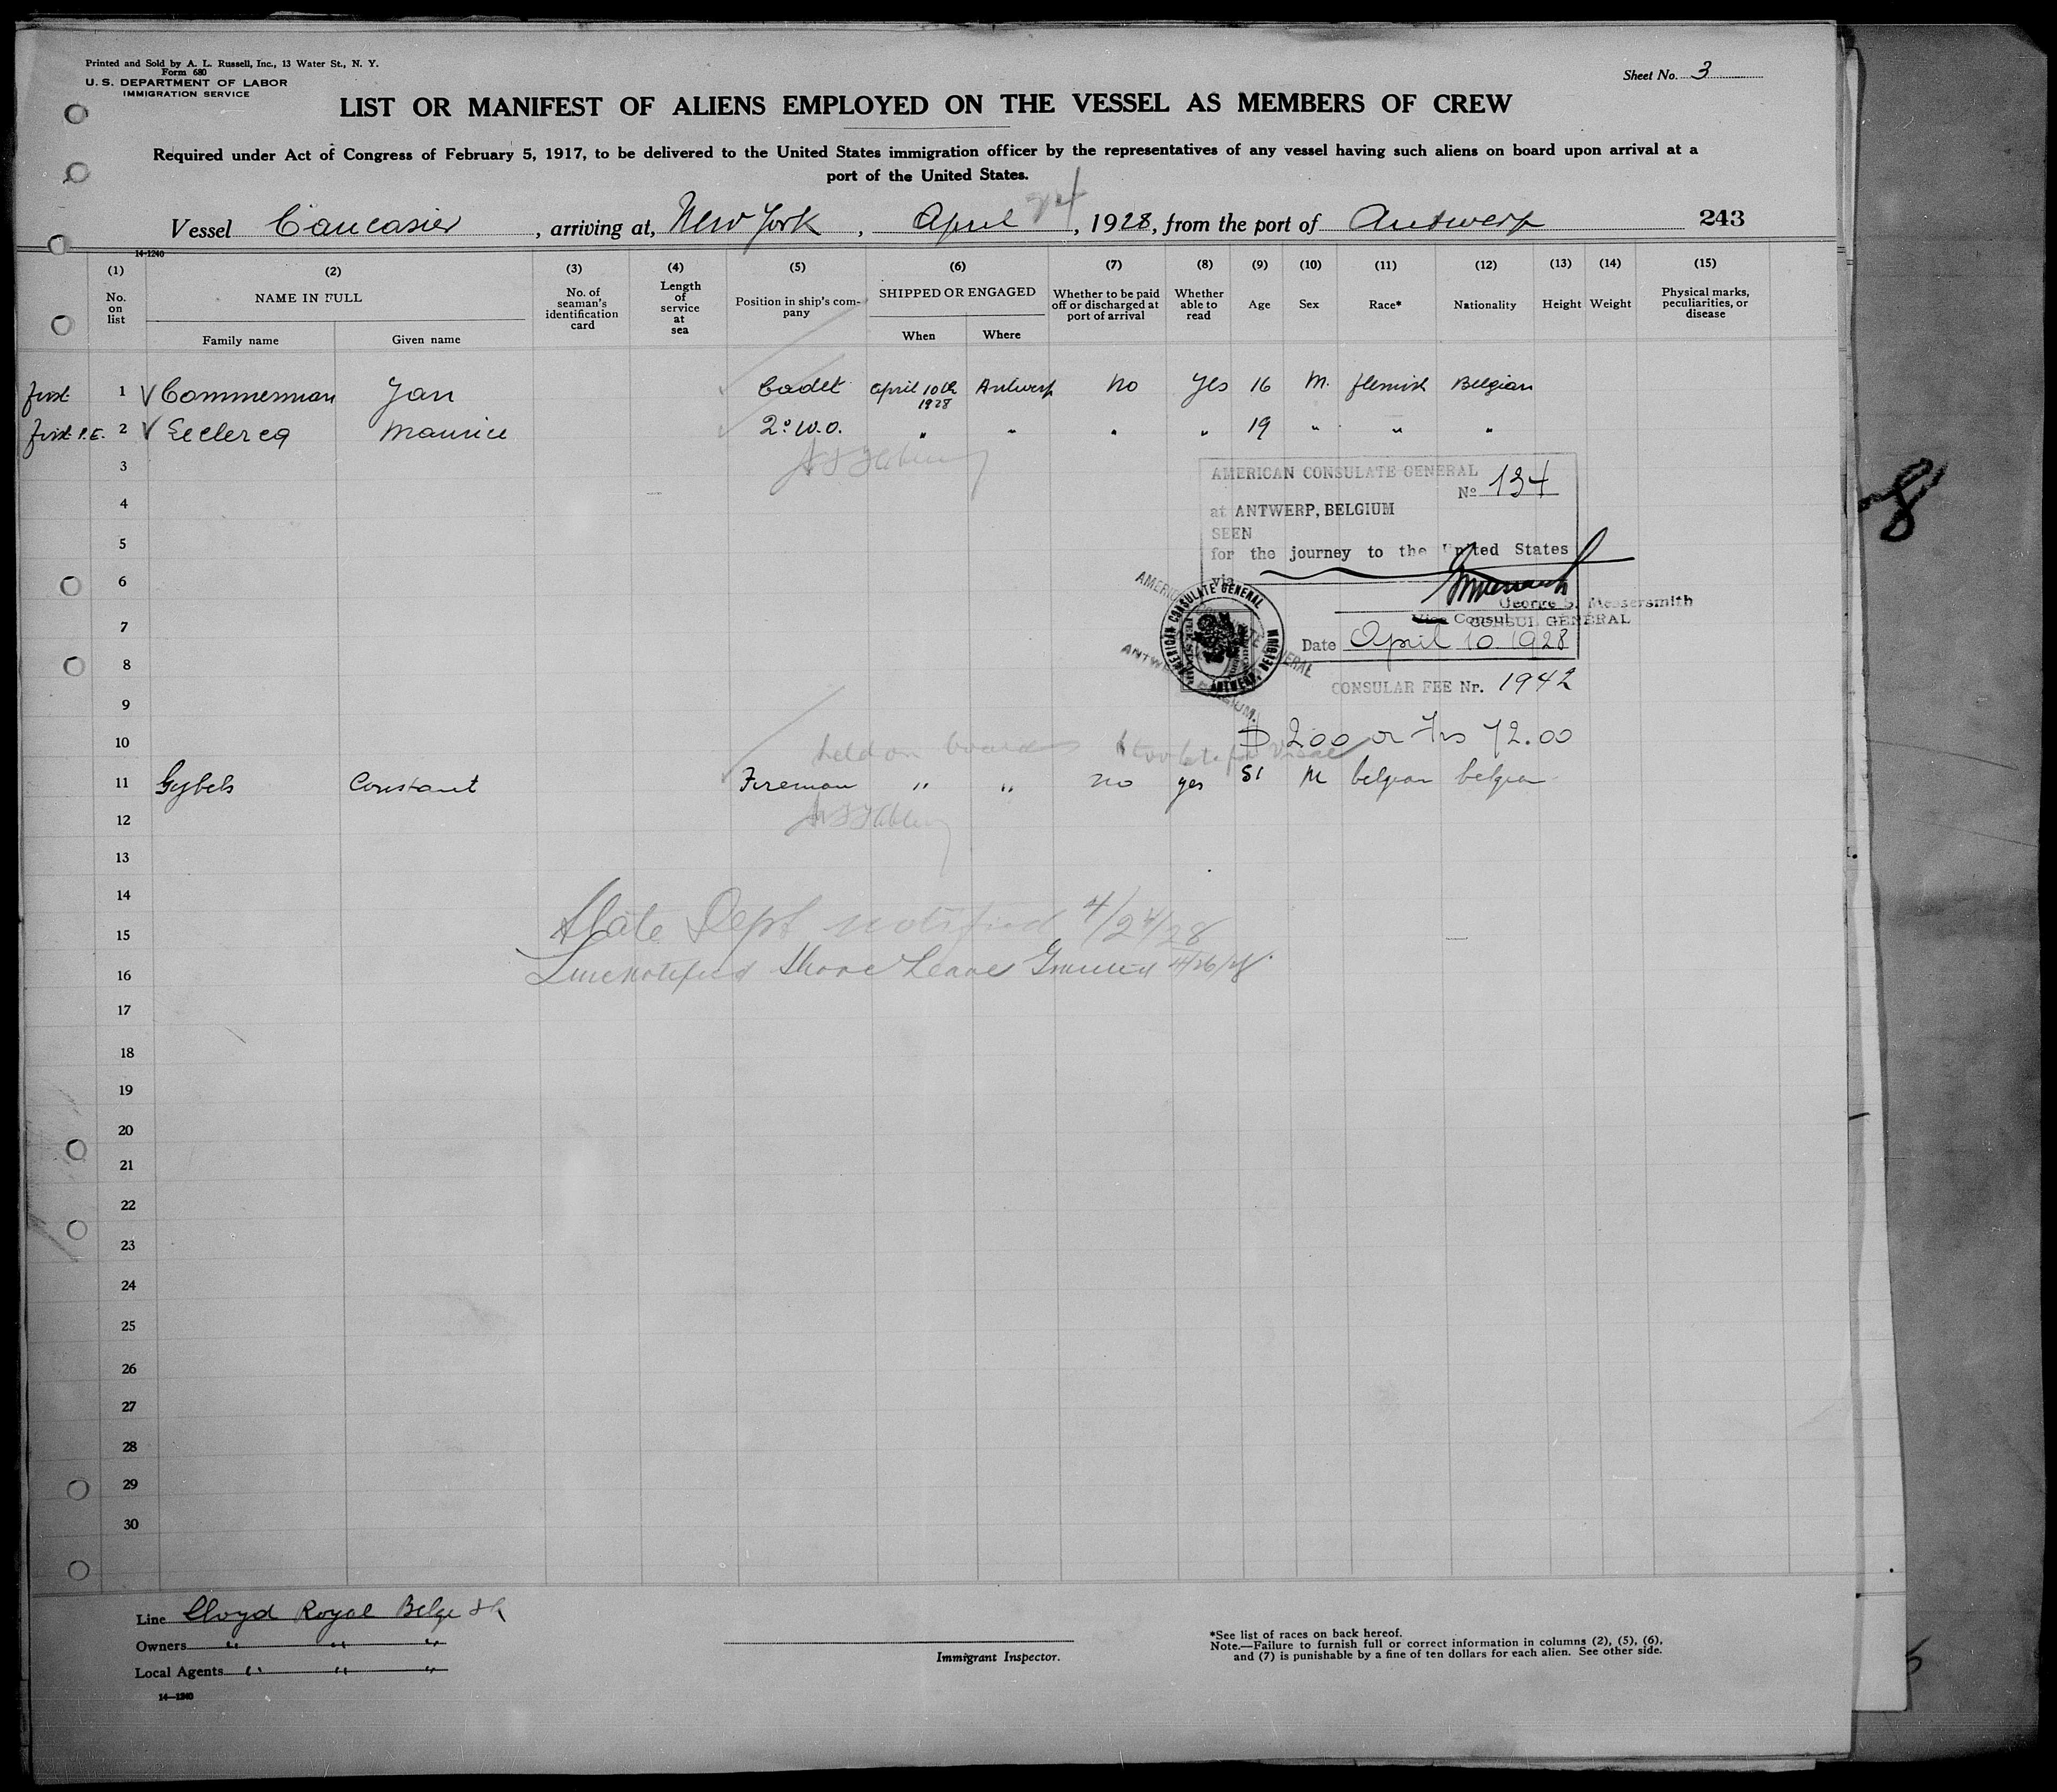 Printed and Sold by A. L. Russell, Inc., 13 Water St., N. Y.
Form 680
U. S. DEPARTMENT OF LABOR
IMMIGRATION SERVICE
Sheet No. 3
LIST OR MANIFEST OF ALIENS EMPLOYED ON THE VESSEL AS MEMBERS OF CREW
Required under Act of Congress of February 5, 1917, to be delivered to the United States immigration officer by the representatives of any vessel having such aliens on board upon arrival at a
port of the United States.
Vessel Caucasier, arriving at, New York, April 24, 1928, from the port of Antwerp 243
14-1240
(1) (2) (3) (4) (5) (6) (7) (8) (9) (10) (11) (12) (13) (14) (15)
No. on list
NAME IN FULL
Family name
Given name
No. of seaman's identification card
Length of service at sea
Position in ship's company
SHIPPED OR ENGAGED
When
Where
Whether to be paid off or discharged at port of arrival
Whether able to read
Age
Sex
Race*
Nationality
Height
Weight
Physical marks, peculiarities, or disease
first 1 Commerman Jan Cadet April 10th 1928 Antwerp No Yes 16 M. flemish Belgian
first P.E. 2 Leclercq Maurice 2º W.O. " " " " 19 " " "
3
4
5
6
7
8
9
10
AMERICAN CONSULATE GENERAL
Nº 134
at ANTWERP, BELGIUM
SEEN
for the journey to the United States
via
George S. Messersmith
Vice Consul
CONSUL GENERAL
Date April 10 1928
AMERICAN CONSULATE GENERAL
ANTWERP, BELGIUM
CONSULAR FEE Nr. 1942
$ 2.00 or Frs 72.00
held on board too late for visae
11 Gybels Constant Fireman " " no yes 51 M belgian belgian
12
13
14
State Dept notified 4/24/28
15
Line notified Shore Leave Granted 4/26/28
16
17
18
19
20
21
22
23
24
25
26
27
28
29
30
Line Lloyd Royal Belge
Owners " " "
Local Agents " " "
14—1240
Immigrant Inspector.
*See list of races on back hereof.
Note.—Failure to furnish full or correct information in columns (2), (5), (6),
and (7) is punishable by a fine of ten dollars for each alien. See other side.
8